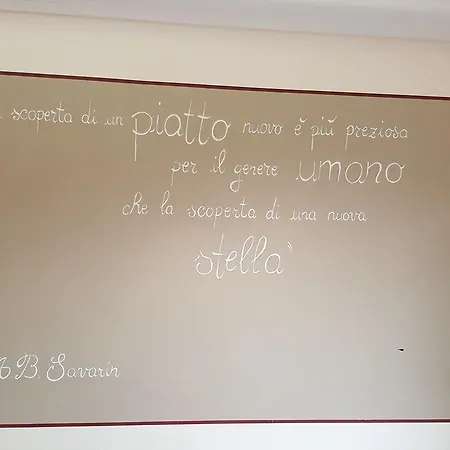 scoperta di un piatto nuovo è più preziosa
per il genere umano
che la scoperta di una nuova
stella"
B. Savarin